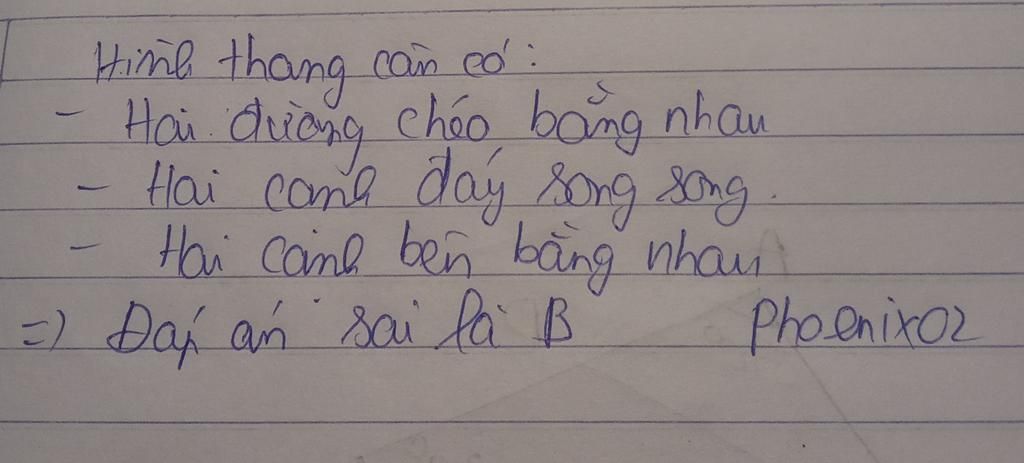 Hình thang cân có:
- Hai đường chéo bằng nhau
- Hai cạnh đáy song song.
- Hai cạnh bên bằng nhau
=) Đáp án sai là B Phoenix02